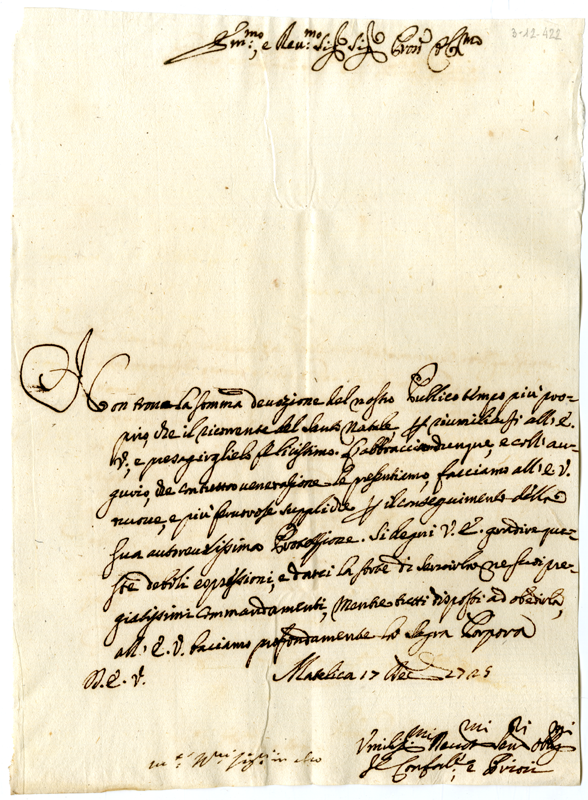 3-12-422
Em.mo, e Reu.mo Sig.r Sig.r Pron Col.mo
Non troua la somma deuozione del nostro Publico tempo piu' pro-
prio che il ricorrente del Santo Natale p riumiliarsi all' E.
V., e presagirglielo felicissimo. L'abbraccia dunque, e coll' au-
gurio, che con tutta venerazione le presentiamo, facciamo all' E. V.
nuoue, e più feruorose suppliche p il conseguimento della
sua autoreuolissima Protezzione. Si degni V. E. gradire que-
ste debili espressioni, e darci la sorte di seruirla ne suoi pre-
giatissimi commandamenti, mentre tutti disposti ad obedirla,
all' E. V. baciamo profondamente la Sagra Porpora
D. E. V.
Matelica 17 Dec 1725
Vmiliss.mi Deuot.mi Seru.ri Oblig.mi
Il Confal.re, e Priori